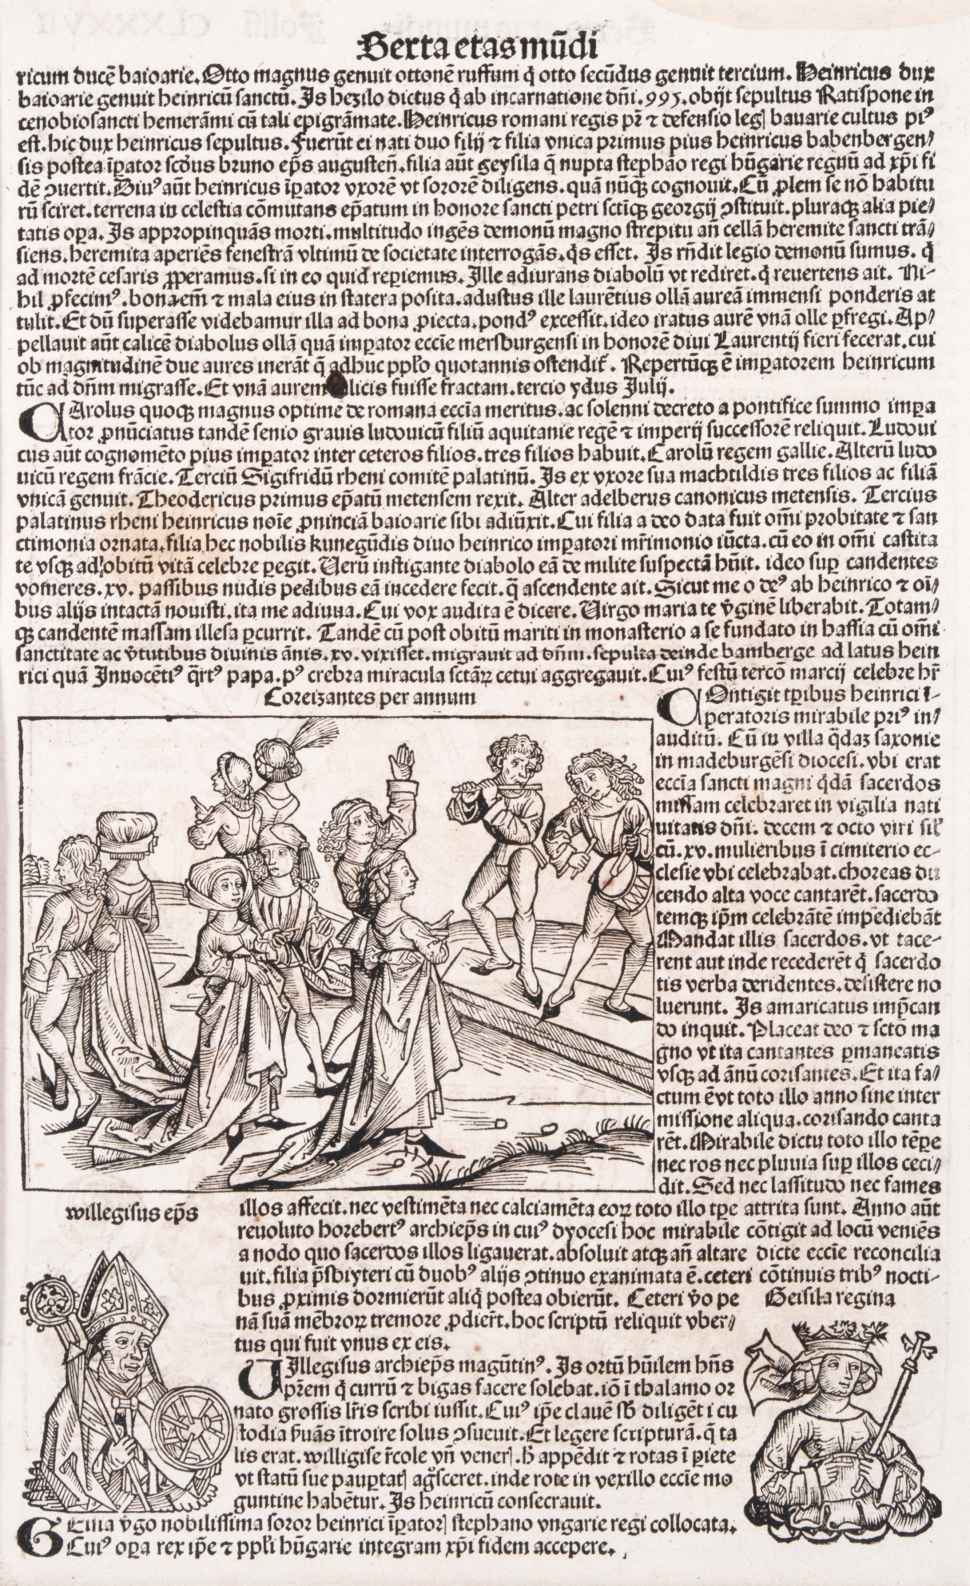 Sexta etas mūdi
ricum ducē baioarie. Otto magnus genuit ottonē ruffum q̄ otto secūdus genuit tercium. Heinricus dux
baioarie genuit heinricū sanctū. Is hezilo dictus q̄ ab incarnatione dñi. 995. obijt sepultus Ratispone in
cenobio sancti hemerāmi cū tali epigrāmate. Heinricus romani regis pr̄ ⁊ defensio leg bauarie cultus piꝰ
est. hic dux heinricus sepultus. Fuerūt ei nati duo filij ⁊ filia vnica primus pius heinricus babenbergen/
sis postea īꝑator scđus bruno ep̄s augusteñ. filia aūt geysila q̄ nupta stephāo regi hūgarie regnū ad xp̄i fi
dē ꝯuertit. Diuꝰ aūt heinricus īꝑator vxorē vt sororē diligens. quā nūq̄ cognouit. Cū ꝓlem se nō habitu
rū sciret. terrena in celestia cōmutans ep̄atum in honore sancti petri sctiq̄ georgij ꝯstituit. pluraq̄ alia pie/
tatis oꝑa. Is appropinquās morti. multitudo ingēs demonū magno strepitu añ cellā heremite sancti trā/
siens. heremita aperiēs fenestrā vltimū de societate interrogās. q̄s esset. Is rñdit legio demonū sumus. q̄
ad mortē cesaris ꝓꝑamus. si in eo quid reꝑiemus. Ille adiurans diabolū vt rediret. q̄ reuertens ait. Ni-
hil ꝓfecimꝰ. bona em̄ ⁊ mala eius in statera posita. adustus ille laurētius ollā aureā immensi ponderis at
tulit. Et dū superasse videbamur illa ad bona ꝓiecta. pondꝰ excessit. ideo iratus aurē vnā olle ꝑfregi. Ap/
pellauit aūt calicē diabolus ollā quā imꝑator eccīe mersburgensi in honorē diui Laurentij fieri fecerat. cui
ob magnitudinē due aures inerāt q̄ adhuc pp̄lo quotannis ostendit̄. Repertūq̄ ē imꝑatorem heinricum
tūc ad dñm migrasse. Et vnā aurem licis fuisse fractam. tercio ydus Julij.
CArolus quoq̄ magnus optime de romana eccīa meritus. ac solenni decreto a pontifice summo imꝑa
tor ꝓnūciatus tandē senio grauis ludouicū filiū aquitanie regē ⁊ imperij successorē reliquit. Ludoui
cus aūt cognomēto pius imꝑator inter ceteros filios. tres filios habuit. Carolū regem gallie. Alterū ludo
uicū regem frācie. Terciū Sigifridū rheni comitē palatinū. Is ex vxore sua machtildis tres filios ac filiā
vnicā genuit. Theodericus primus ep̄atū metensem rexit. Alter adelberus canonicus metensis. Tercius
palatinus rheni heinricus noīe ꝓuinciā baioarie sibi adiūxit. Cui filia a deo data fuit om̄i probitate ⁊ san
ctimonia ornata. filia hec nobilis kunegūdis diuo heinrico imꝑatori mr̄imonio iūcta. cū eo in om̄i castita
te vsq̄ ad obitū vitā celebre ꝑegit. Verū instigante diabolo eā de milite suspectā hūit. ideo suꝑ candentes
vomeres. xv. passibus nudis pedibus eā incedere fecit. q̄ ascendente ait. Sicut me o deꝰ ab heinrico ⁊ oī/
bus alijs intactā nouisti. ita me adiuua. Cui vox audita ē dicere. Uirgo maria te v̄ginē liberabit. Totam/
q̄ candentē massam illesa ꝑcurrit. Tandē cū post obitū mariti in monasterio a se fundato in hassia cū om̄i
sanctitate ac v̄tutibus diuinis ānis. xv. vixisset. migrauit ad dñm. sepulta deinde bamberge ad latus hein
rici quā Innocētiꝰ q̄rtꝰ papa. pꝰ crebra miracula sctāꝝ cetui aggregauit. Cuiꝰ festū tercō marcij celebre hr̄
Coreizantes per annum
COntigit tꝑibus heinrici i-
peratoris mirabile priꝰ in/
auditū. Cū in villa q̄daz saxonie
in madeburgēsi diocesi. vbi erat
eccīa sancti magni q̄dā sacerdos
missam celebraret in vigilia nati
uitatis dñi. decem ⁊ octo viri sil̄
cū. xv. mulieribus ī cimiterio ec-
clesie vbi celebrabat. choreas du
cendo alta voce cantarēt. sacerdo
temq̄ ip̄m celebrātē impediebāt
Mandat illis sacerdos. vt tace-
rent aut inde recederēt q̄ sacerdo
tis verba deridentes. desistere no
luerunt. Is amaricatus imp̄can
do inquit. Placeat deo ⁊ sctō ma
gno vt ita cantantes ꝑmaneatis
vsq̄ ad ānū corisantes. Et ita fa/
ctum ē vt toto illo anno sine inter
missione aliqua. corisando canta
rēt. Mirabile dictu toto illo tēꝑe
nec ros nec pluuia suꝑ illos ceci/
dit. Sed nec lassitudo nec fames
illos affecit. nec vestimēta nec calciamēta eoꝝ toto illo tꝑe attrita sunt. Anno aūt
reuoluto horebertꝰ archiep̄s in cuiꝰ dyocesi hoc mirabile cōtigit ad locū veniēs
a nodo quo sacerdos illos ligauerat. absoluit atq̄ añ altare dicte eccīe reconcilia
uit. filia p̄sbiyteri cū duobꝰ alijs ꝯtinuo exanimata ē. ceteri cōtinuis tribꝰ nocti-
bus ꝓximis dormierūt aliq̄ postea obierūt. Ceteri v̄o pe
nā suā mēbroꝝ tremore ꝓdierт. hoc scriptū reliquit vber/
tus qui fuit vnus ex eis.
willegisus ep̄s
Geisila regina
UIllegisus archiep̄s magūtinꝰ. Is ortū hūilem hñs
pr̄em q̄ currū ⁊ bigas facere solebat. iō ī thalamo or
nato grossis lr̄is scribi iussit. Cuiꝰ ip̄e clauē sb̄ diligēt i cu
stodia ītroire solus ꝯsueuit. Et legere scripturā. q̄ ta
lis erat. willigise r̄cole vñ vener. h̄ appēdit ⁊ rotas ī ꝑiete
vt statū sue pauꝑtat agͦsceret. inde rote in vexillo eccīe mo
guntine habētur. Is heinricū consecrauit.
GEisila v̄go nobilissima soror heinrici īꝑator stephano vngarie regi collocata.
Cuiꝰ oꝑa rex ip̄e ⁊ pp̄li hūgarie integram xp̄i fidem accepere.